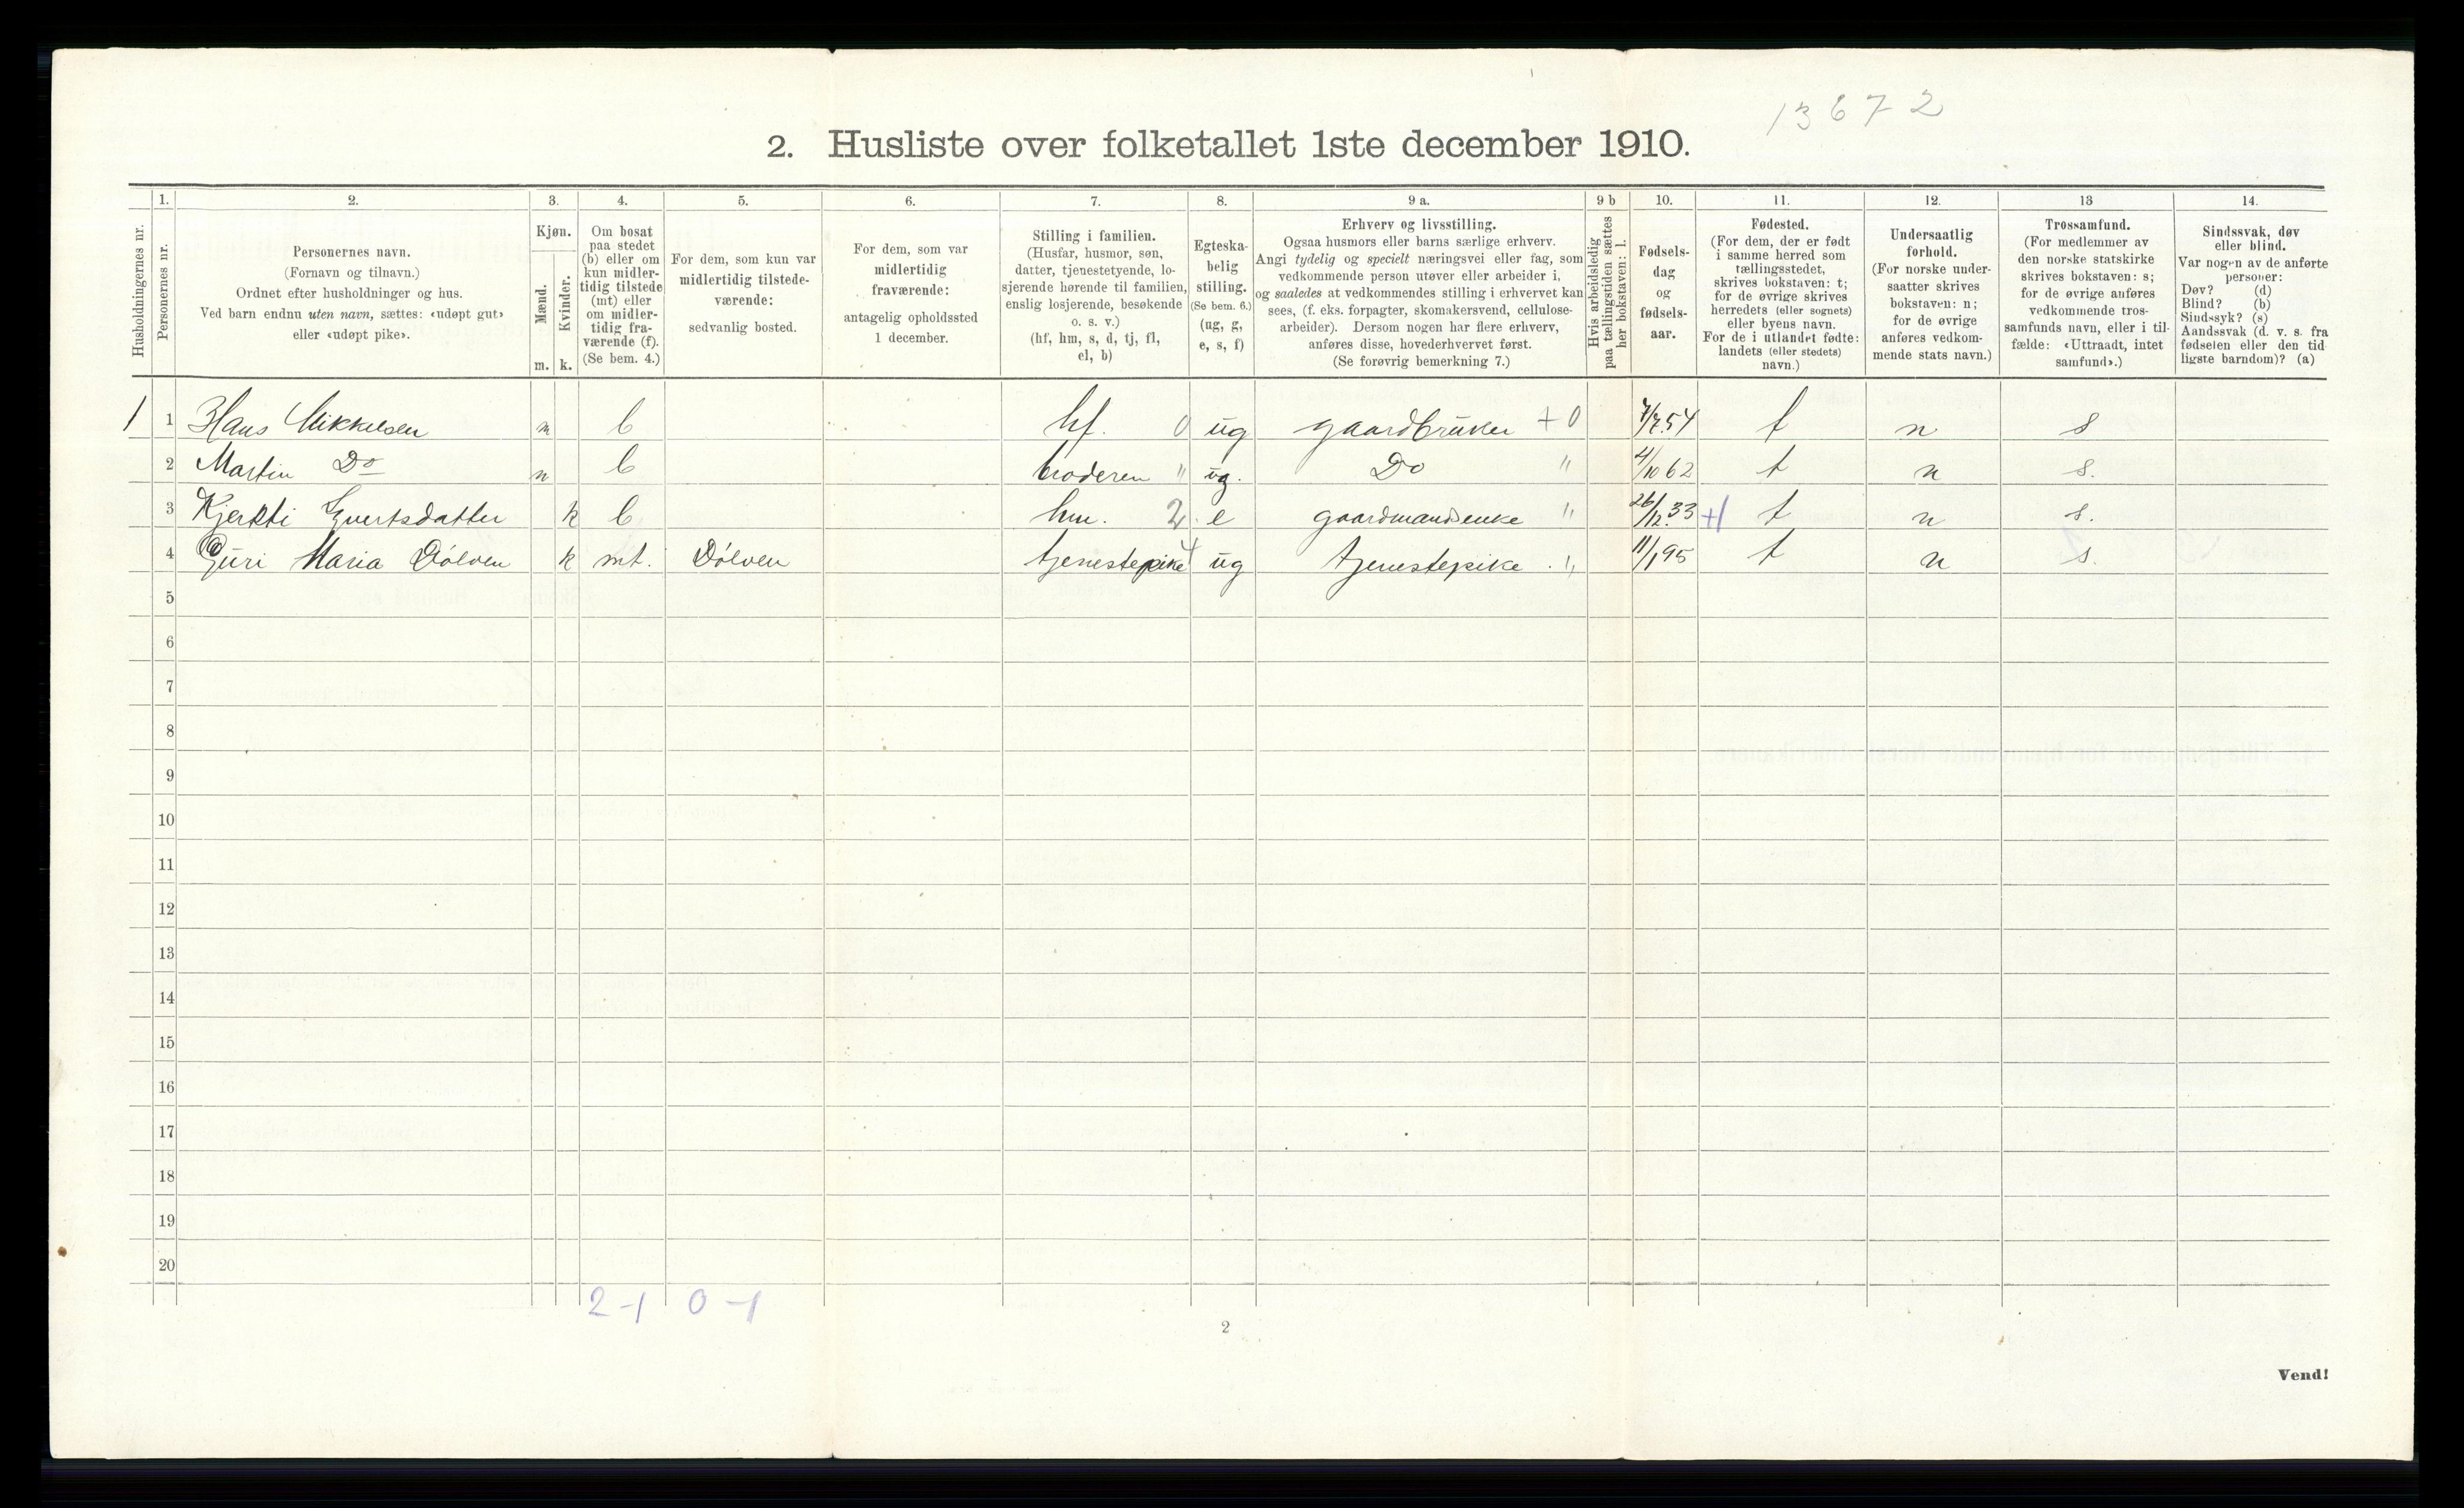 13672
2. Husliste over folketallet 1ste december 1910.
Husholdningernes nr.
1.
Personernes nr.
2.
Personernes navn.
(Fornavn og tilnavn.)
Ordnet efter husholdninger og hus.
Ved barn endnu uten navn, sættes: «udøpt gut»
eller «udøpt pike».
3.
Kjøn.
Mænd.
Kvinder.
m. k.
4.
Om bosat
paa stedet
(b) eller om
kun midler-
tidig tilstede
(mt) eller
om midler-
tidig fra-
værende (f).
(Se bem. 4.)
5.
For dem, som kun var
midlertidig tilstede-
værende:
sedvanlig bosted.
6.
For dem, som var
midlertidig
fraværende:
antagelig opholdssted
1 december.
7.
Stilling i familien.
(Husfar, husmor, søn,
datter, tjenestetyende, lo-
sjerende hørende til familien,
enslig losjerende, besøkende
o. s. v.)
(hf, hm, s, d, tj, fl,
el, b)
8.
Egteska-
belig
stilling.
(Se bem. 6.)
(ug, g,
e, s, f)
9 a.
Erhverv og livsstilling.
Ogsaa husmors eller barns særlige erhverv.
Angi tydelig og specielt næringsvei eller fag, som
vedkommende person utøver eller arbeider i,
og saaledes at vedkommendes stilling i erhvervet kan
sees, (f. eks. forpagter, skomakersvend, cellulose-
arbeider). Dersom nogen har flere erhverv,
anføres disse, hovederhvervet først.
(Se forøvrig bemerkning 7.)
9 b
Hvis arbeidsledig
paa tællingstiden sættes
her bokstaven: l.
10.
Fødsels-
dag
og
fødsels-
aar.
11.
Fødested.
(For dem, der er født
i samme herred som
tællingsstedet,
skrives bokstaven: t;
for de øvrige skrives
herredets (eller sognets)
eller byens navn.
For de i utlandet fødte:
landets (eller stedets)
navn.)
12.
Undersaatlig
forhold.
(For norske under-
saatter skrives
bokstaven: n;
for de øvrige
anføres vedkom-
mende stats navn.)
13
Trossamfund.
(For medlemmer av
den norske statskirke
skrives bokstaven: s;
for de øvrige anføres
vedkommende tros-
samfunds navn, eller i til-
fælde: «Uttraadt, intet
samfund».)
14.
Sindssvak, døv
eller blind.
Var nogen av de anførte
personer:
Døv? (d)
Blind? (b)
Sindssyk? (s)
Aandssvak (d. v. s. fra
fødselen eller den tid-
ligste barndom)? (a)
1 1 Hans Mikkelsen m b hf. 0 ug gaardbruker +0 7/7 54 t n s
2 Martin Do m b broderen " ug. Do " 4/10 62 t n s.
3 Kjersti Evertsdatter k b hm. 2 e gaardmandsenke " 26/12 33 +1 t n s.
4 Guri Maria Dølven k mt. Dølven tjenestepike ug tjenestepike " 11/1 95 t n s.
5
6
7
8
9
10
11
12
13
14
15
16
17
18
19
20
2-1 0-1
2
Vend!